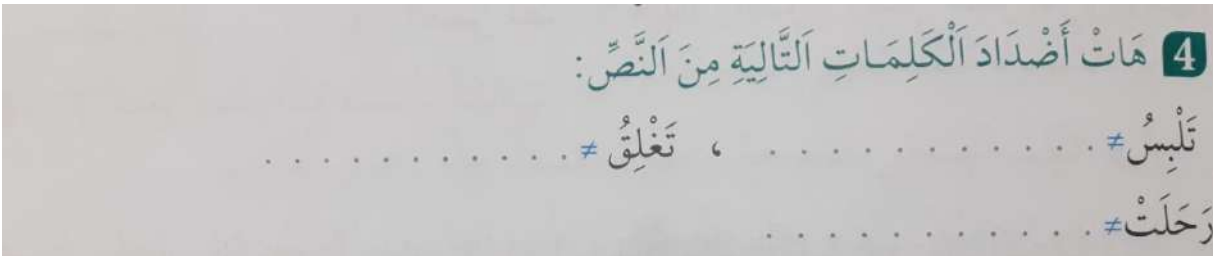 4 هَاتْ أَضْدَادَ اَلْكَلِمَاتِ اَلتَّالِيَةِ مِنَ اَلنَّصِّ:
تَلْبِسُ ≠ . . . . . . . . . . . ، تَغْلِقُ ≠ . . . . . . . . . . . .
رَحَلَتْ ≠ . . . . . . . . . . . .